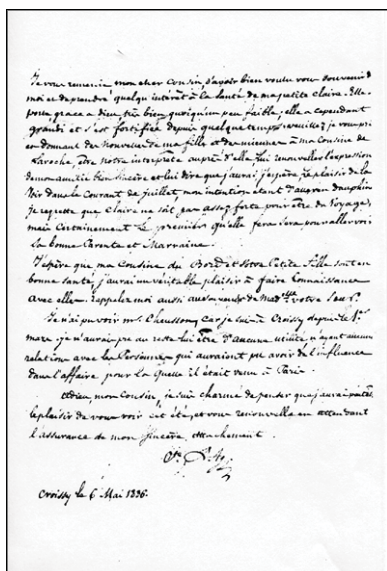 Je vous remercie mon cher Cousin d'avoir bien voulu vous souvenir de
moi et de prendre quelqu'intérêt à la santé de ma petite Claire. Elle
porte grace a dieu très bien quoiqu'un peu faible; elle a cependant
grandi et s'est fortifiée depuis quelque temps. veuillez je vous prie
en donnant des nouvelles de ma fille et des miennes à ma Cousine de
Laroche, être notre interprete auprès d'elle, lui renouveller l'expression
de mon amitié bien sincère et lui dire que j'aurai j'espère le plaisir de la
Voir dans le Courant de juillet, mon intention étant d'
je regrette que Claire ne soit pas assez forte pour être du Voyage,
mais Certainement le premier qu'elle fera sera pour aller voir
la bonne Parente et Marraine.
J'espère que ma Cousine du Bord et Votre Petite fille sont en
bonne santé, j'aurai un véritable plaisir à faire Connaissance
avec elle. Rappelez moi aussi au souvenir de Votre Soeur.
Je n'ai pu voir mr. Chausson, Car je suis à Croissy depuis le 1er
mars, je n'aurais pu au reste lui être d'aucune utilité n'ayant aucune
relation avec les Personnes qui auraient pu avoir de l'influence
dans l'affaire pour la Quelle il était venu à Paris.
Adieu mon Cousin, je suis charmé de penser que j'aurai
le plaisir de vous voir cet été, et vous renouvelle en attendant
l'assurance de mon Sincère attachement.
Croissy le 6 Mai 1836.